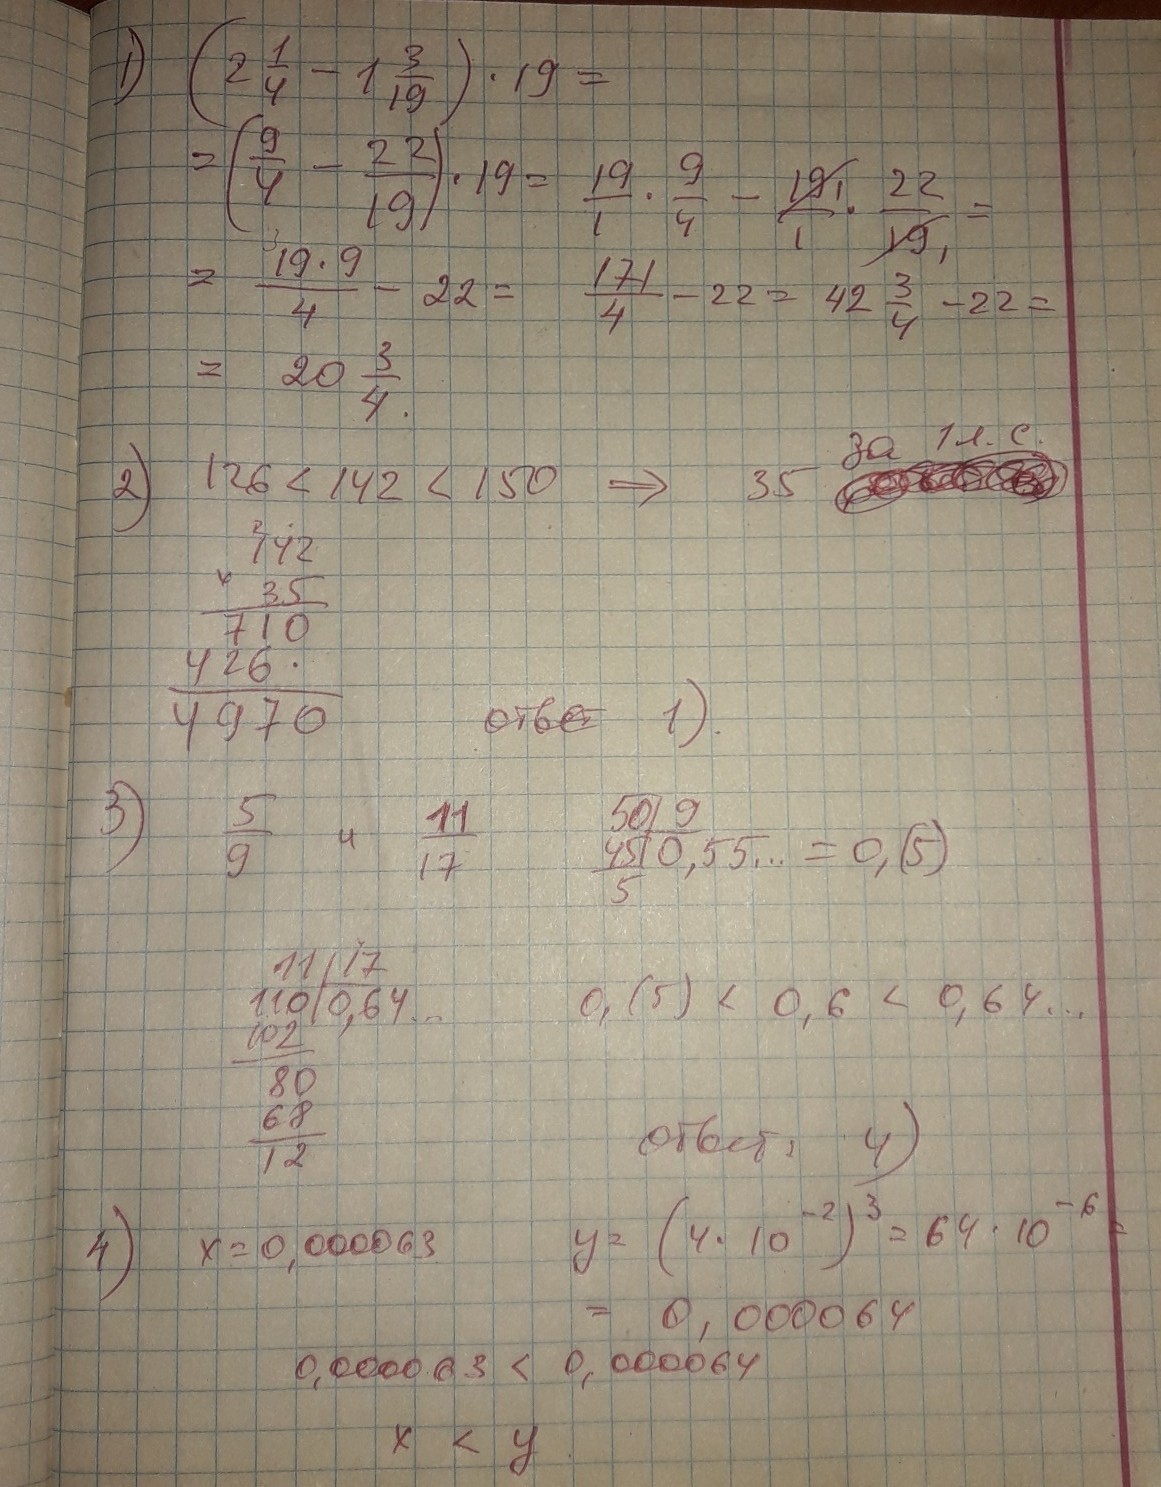 1) (2 1/4 − 1 3/19) · 19 =
= (9/4 − 22/19) · 19 = 19/1 · 9/4 − 19/1 · 22/19 =
= 19·9/4 − 22 = 171/4 − 22 = 42 3/4 − 22 =
= 20 3/4.
за 1 л. с.
2) 126 < 142 < 150 ⇒ 35
142
× 35
710
426·
4970 ответ 1).
3) 5/9 и 11/17
50 | 9
45 | 0,55... = 0,(5)
5
11 | 17
110 | 0,64... 0,(5) < 0,6 < 0,64...
102
80
68
12
ответ: 4)
4) x = 0,000063 y = (4 · 10⁻²)³ = 64 · 10⁻⁶ =
= 0,000064
0,000063 < 0,000064
x < y